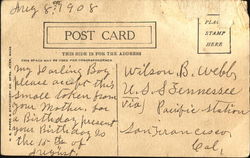 Aug 8th 1908
POST CARD
PLACE
STAMP
HERE
THIS SIDE IS FOR THE ADDRESS
My Darling Boy
please accept this
small token from
your Mother, for
a Birthday present
your Birthday is
the 15th of
August.
Wilson B. Webb
U.S.S Tennessee
Via Pacific Station
San Francisco
Cal,